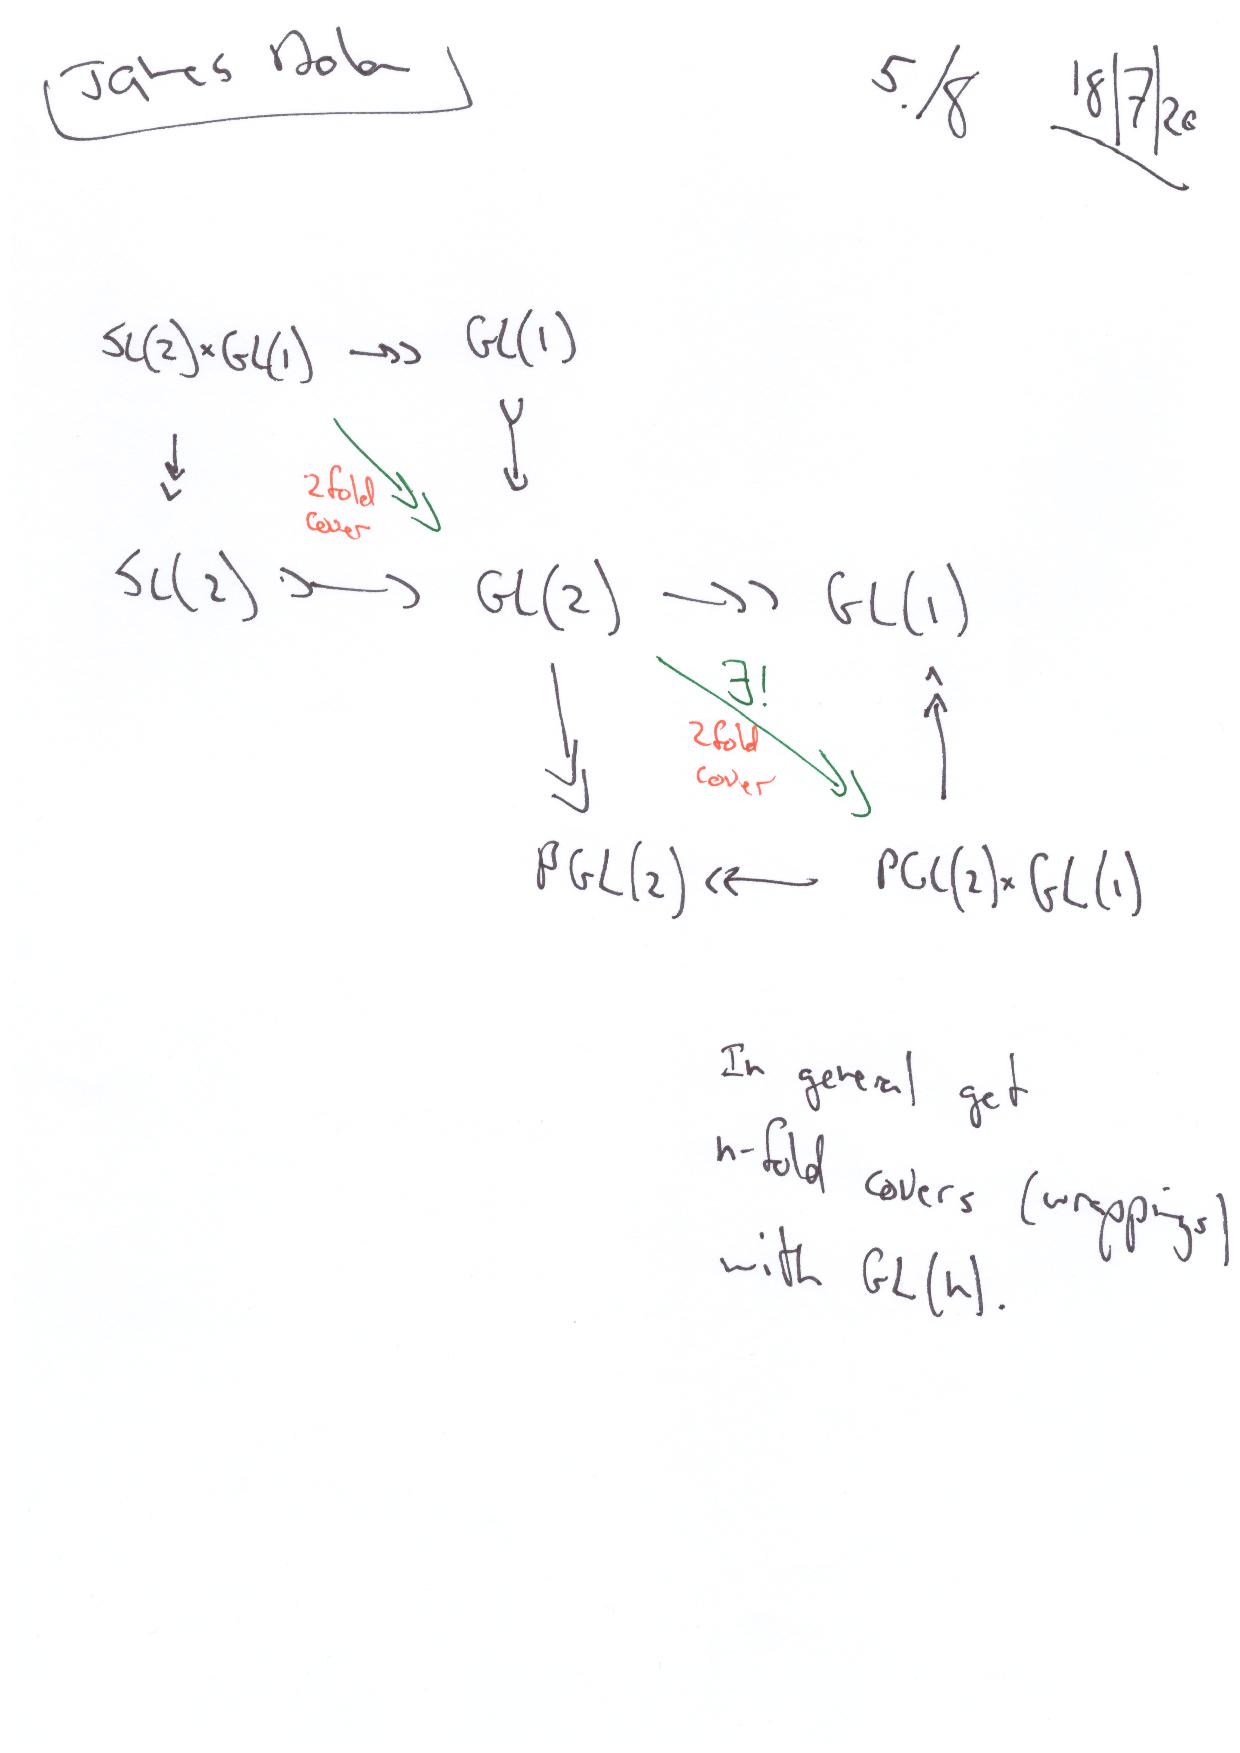 James Dolan
5./8 18/7/20
SL(2)×GL(1) ->> GL(1)
2 fold
cover
SL(2) >-> GL(2) ->> GL(1)
∃!
2 fold
cover
PGL(2) <<- PGL(2)×GL(1)
In general get
n-fold covers (wrappings)
with GL(n).